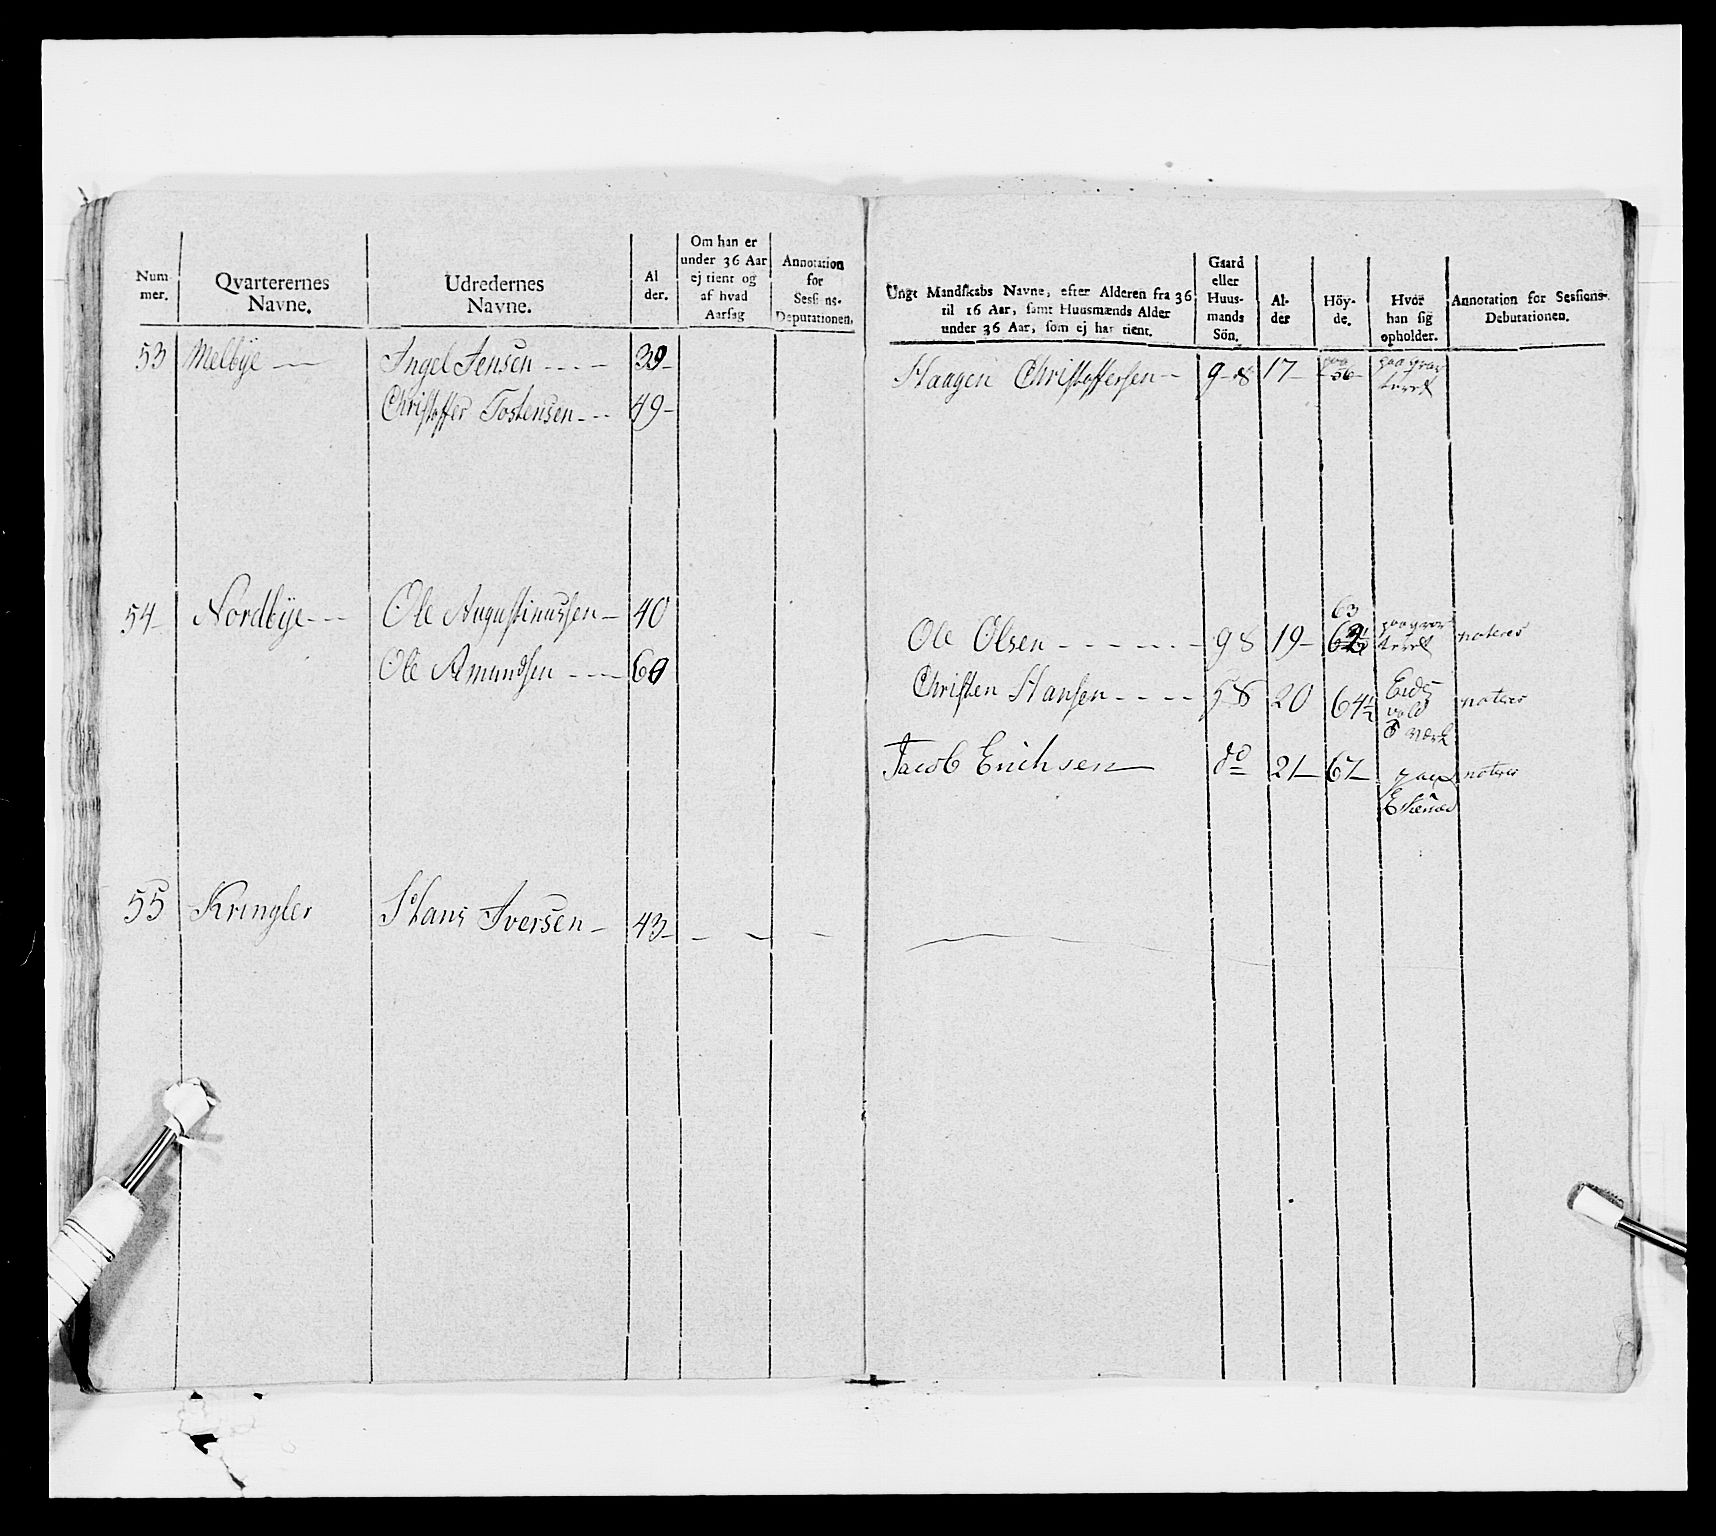 Num-
mer.
Qvarterernes
Navne.
Udredernes
Navne.
Al
der.
Om han er
under 36 Aar
ej tient og
af hvad
Aarsag
Annotation
for
Sessions-
Deputationen.
Ungt Mandskabs Navne, efter Alderen fra 36
til 16 Aar, samt Huusmænds Alder
under 36 Aar, som ej har tient.
Gaard
eller
Huus-
mands
Sön.
Al-
der
Höy-
de.
Hvor
han sig
opholder.
Annotation for Sessions-
Deputationen.
53 Melbye Ingel Jensen 39
Haagen Christoffersen g 17 56
Christoffer Tostensen 49
54 Nordbye Ole Augustinussen 40
63
Ole Olsen 19 noteres
Ole Amundsen 60
Christen Hansen 20 64½ Eids
vold
Værk noteres
Jacob Erichsen do 21 67 paa noteres
55 Kringler Hans Iversen 43